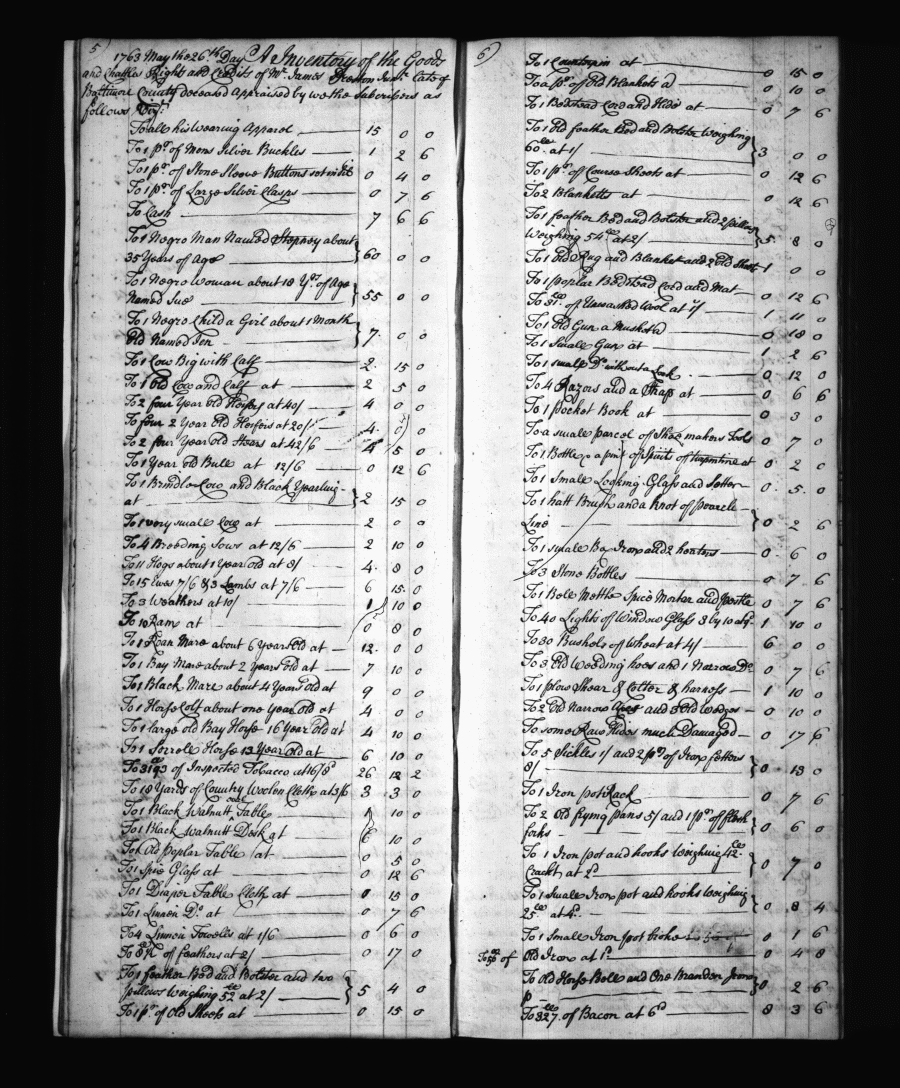 5
1763 May the 26th Day A Inventory of the Goods
and Chattles Rights and Credits of Mr. James Preston Junr. late of
Baltimore County deceased Appraised by we the Subcribers as
follows Viz:
To all his Wearing Apparel 15 0 0
To 1 pr. of Mens Silver Buckles 1 2 6
To 1 pr. of Stone Sleeve Buttons set with 0 4 0
To 1 pr. of Large Silver Clasps 0 7 6
To Cash 7 6 6
To 1 Negro Man Named Stepney about
35 Years of Age 60 0 0
To 1 Negro Woman about 18 Yrs. of Age
Named Sue 55 0 0
To 1 Negro Child a Girl about 1 Month
Old Named Jen 7 0 0
To 1 Cow Big with Calf 2 15 0
To 1 Old Cow and Calf at 2 5 0
To 2 four Year Old Heifers at 40/ 4 0 0
To four 2 Year Old Heifers at 20/ 4 0 0
To 2 four Year Old Steers at 42/6 4 5 0
To 1 Year Old Bull at 12/6 0 12 6
To 1 Brindle Cow and Black Yearling
at 2 15 0
To 1 very small Cow at 2 0 0
To 4 Breeding Sows at 12/6 2 10 0
To 11 Hogs about 1 Year Old at 8/ 4 8 0
To 15 Ewes 7/6 & 3 Lambs at 7/6 6 15 0
To 3 Weathers at 10/ 1 10 0
To 1 Ram at 0 8 0
To 1 Roan Mare about 6 Years Old at 12 0 0
To 1 Bay Mare about 2 Years Old at 7 10 0
To 1 Black Mare about 4 Years Old at 9 0 0
To 1 Horse Colt about one Year Old at 4 0 0
To 1 large old Bay Horse 16 Year Old at 4 10 0
To 1 Sorrele Horse 13 Year Old at 6 10 0
To 3193 of Inspected Tobacco at 16/8 26 12 2
To 18 Yards of Country Woolen Cloth at 3/6 3 3 0
To 1 Black Walnutt Table 1 10 0
To 1 Black Walnutt Desk at 6 10 0
To 1 Old Poplar Table at 0 5 0
To 1 Spie Glass at 0 12 6
To 1 Diaper Table Cloth at 0 15 0
To 1 Linnen Do. at 0 7 6
To 4 Linnen Towells at 1/6 0 6 0
To of feathers at 2/ 0 17 0
To 1 feather Bed and Bolster and two
pillows Weighing 52 at 2/ 5 4 0
To 1 pr. of Old Sheets at 0 15 0
6
To 1 Counterpin at 0 15 0
To a pr. of Old Blankets at 0 10 0
To 1 Bedstead Cord and Hide at 0 7 6
To 1 Old feather Bed and Bolster Weighing
60 at 1/ 3 0 0
To 1 pr. of Course Sheets at 0 12 6
To 2 Blanketts at 0 12 6
To 1 feather Bed and Bolster and 2 pillows
Weighing 54 at 2/ 5 8 0
To 1 Old Rug and Blanket and 2 Old Sheets 1 0 0
To 1 poplar Bedstead Cord and Mat 0 12 6
To 31 of Unwashed Wool at 1/ 1 11 0
To 1 Old Gun a Musket 0 18 0
To 1 Small Gun at 1 2 6
To 1 small Do. without a Lock 0 12 0
To 4 Razors and a Strap at 0 6 6
To 1 pocket Book at 0 3 0
To a small parcel of Shoe makers Tools 0 7 0
To 1 Bottle & a pint of Spirits of turpentine at 0 2 0
To 1 Small Looking Glass and Setter 0 5 0
To 1 hatt Brush and a Knot of
Line 0 2 6
To 1 small Box Iron and 2 heaters 0 6 0
To 3 Stone Bottles 0 7 6
To 1 Bell Mettle Spice Morter and pestle 0 7 6
To 40 Lights of Window Glass 8 by 10 at 9d 1 10 0
To 30 Bushels of Wheat at 4/ 6 0 0
To 3 Old Weeding hoes and 1 Narrow Do. 0 7 6
To 1 plow Shear & Colter & harness 1 10 0
To 2 Old Narrow Axes and 3 Old Wedges 0 10 0
To some Raw Hides much Damaged 0 17 6
To 5 Sickles 1/ and 2 prs. of Iron fetters
8/ 0 13 0
To 1 Iron pot Rack 0 7 6
To 2 Old frying pans 5/ and 1 pr. of flesh
forks 0 6 0
To 1 Iron pot and hooks Weighing 42
Crackt at 2d 0 7 0
To 1 Small Iron pot and hooks Weighing
25 at 4d 0 8 4
To 1 Small Iron pot broke 0 1 6
To 56 of Old Iron at 1d 0 4 8
To Old Horse Bell and One Branden Irons
0 2 6
To 327 of Bacon at 6d 8 3 6